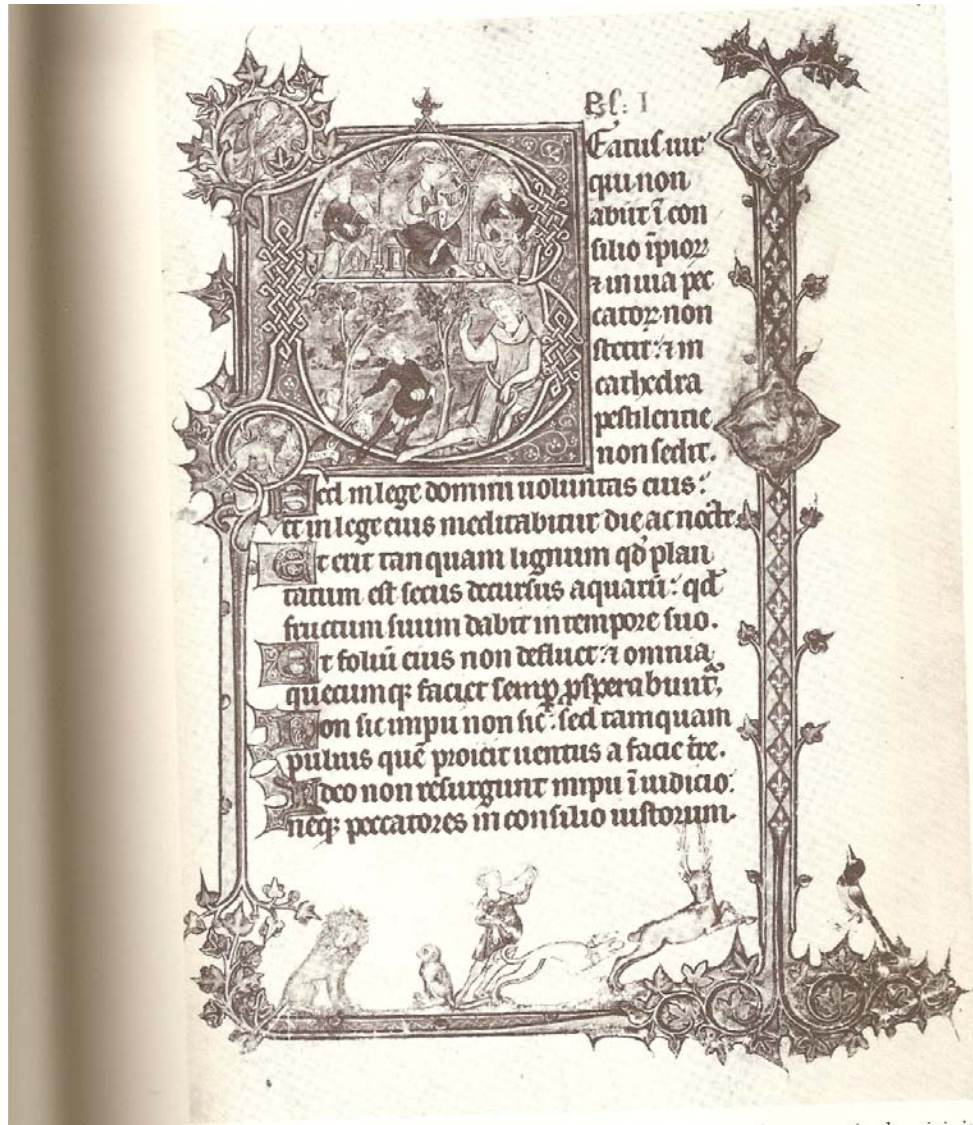 Ps. I
Eatus uir
qui non
abiit ī con
silio īpioꝝ
⁊ in uia pec
catoꝝ non
stetit: ⁊ in
cathedra
pestilentie
non sedit.
Sed in lege domini uoluntas eius:
et in lege eius meditabitur die ac nocte.
Et erit tan quam lignum qđ plan
tatum est secus decursus aquarū: qđ
fructum suum dabit in tempore suo.
Et foliū eius non defluet: ⁊ omnia
quecumqꝫ faciet semꝑ ꝓsperabunt᷑,
Non sic impii non sic: sed tamquam
puluis quē proicit uentus a facie t̄re.
Ideo non resurgunt impii ī iudicio:
neqꝫ peccatores in consilio iustorum.